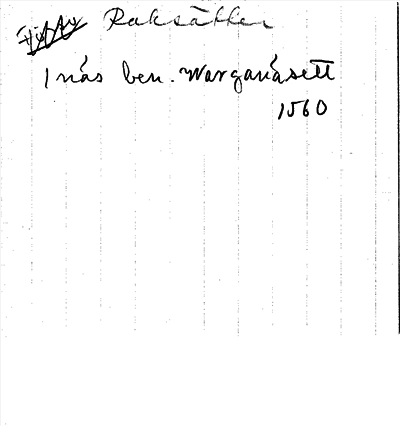 Raksätter
1 näs ben. Warganäsett
1560